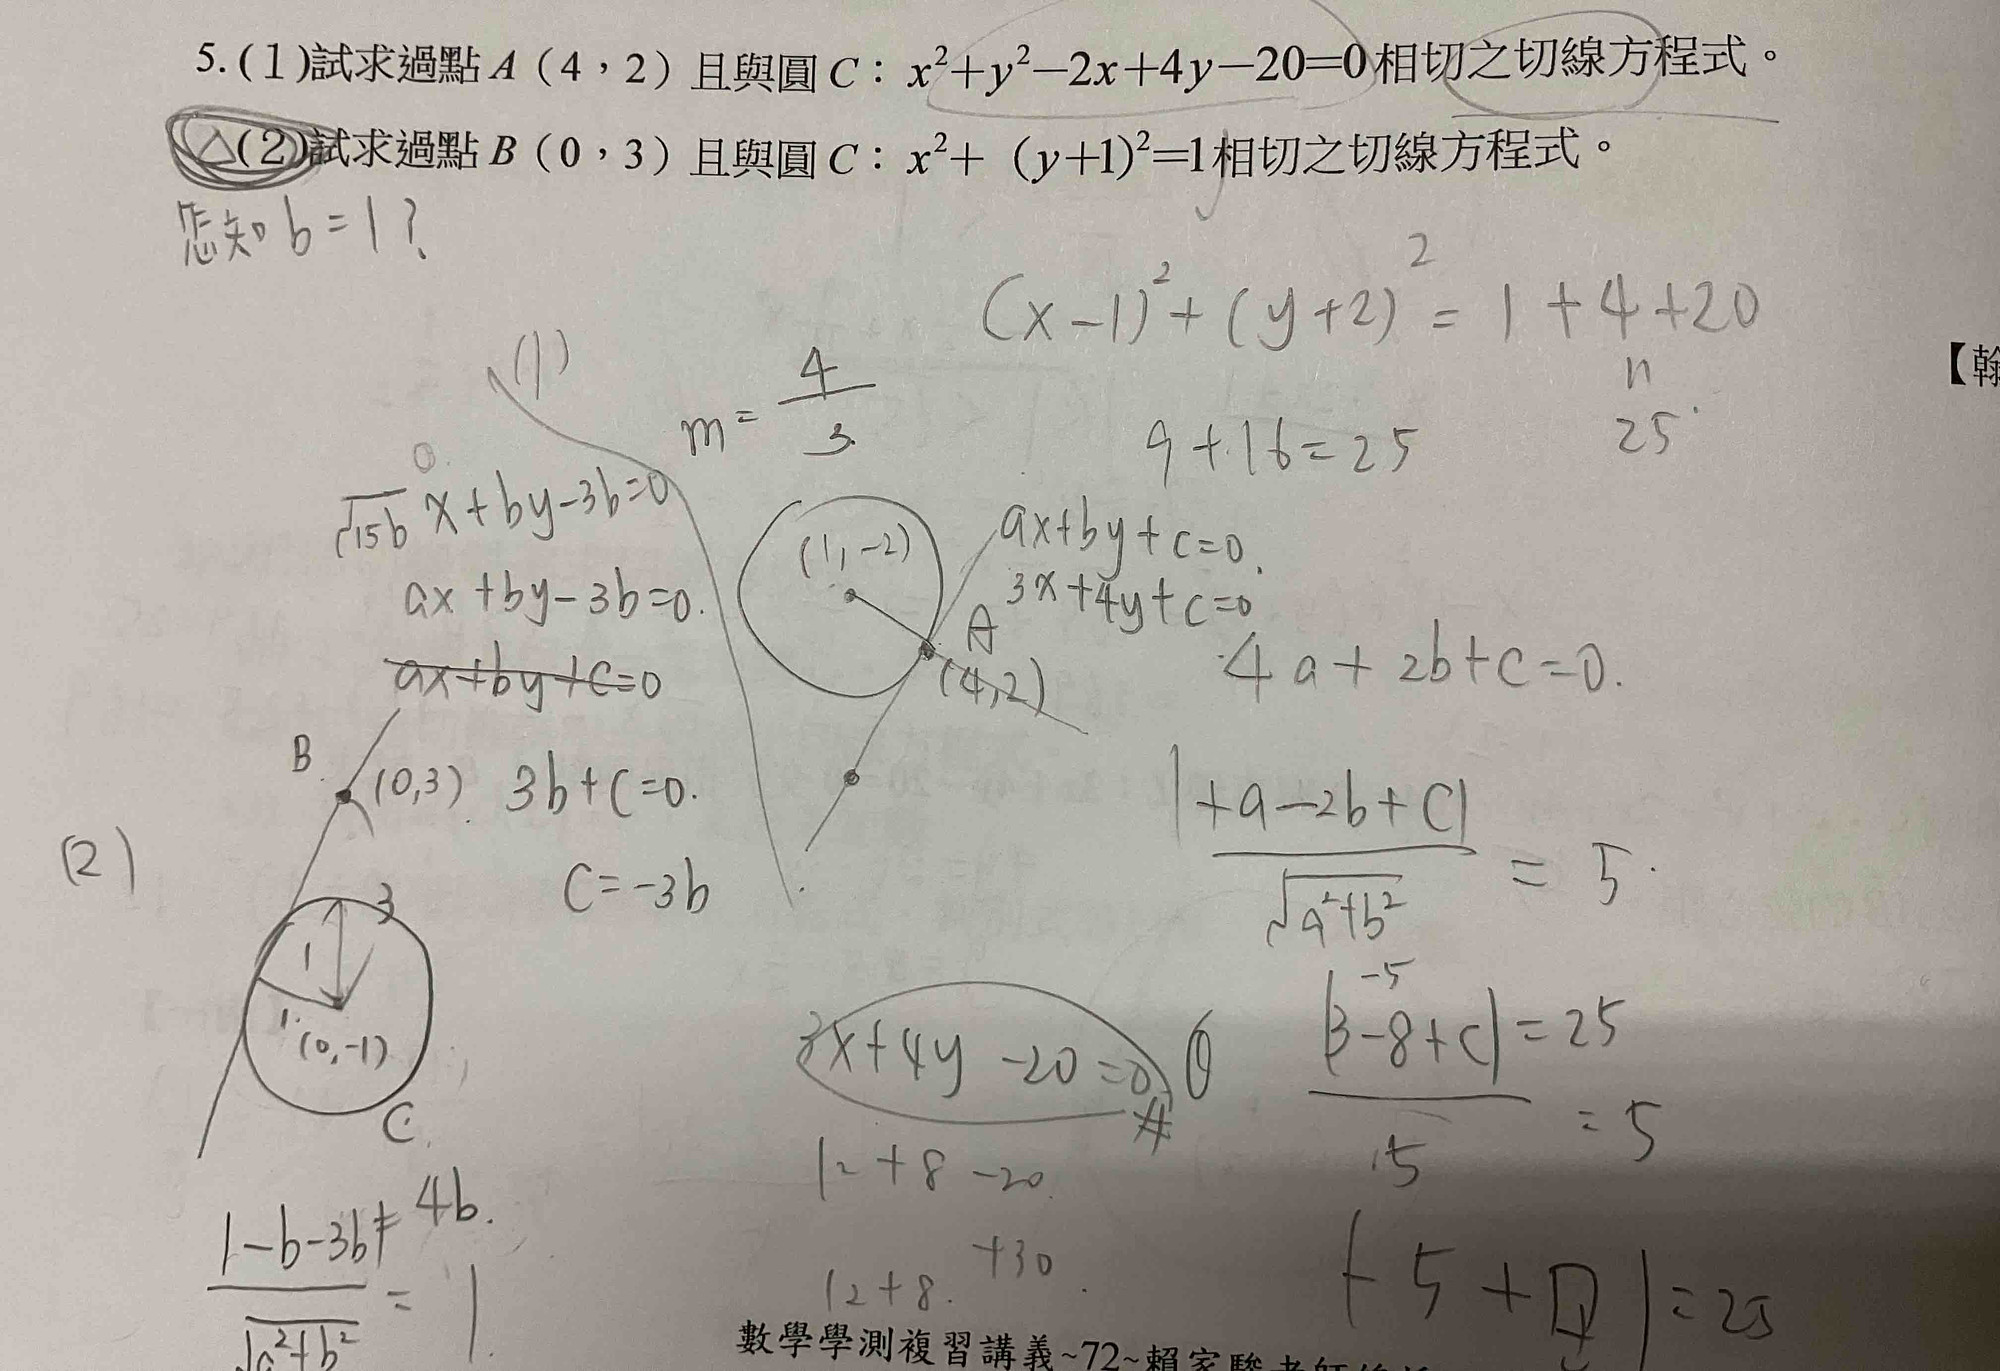 5.(1)試求過點A（4，2）且與圓C：x²+y²−2x+4y−20=0相切之切線方程式。
△(2)試求過點B（0，3）且與圓C：x²+（y+1)²=1相切之切線方程式。
怎知b=1?
(x-1)²+(y+2)²=1+4+20
【翰
25
(1)
m=4/3
9+16=25
√15b x+by-3b=0
ax+by-3b=0.
ax+by+c=0
(1,-2)
ax+by+c=0.
3x+4y+c=0
A
(4,2)
4a+2b+c=0.
B
(0,3)
3b+c=0.
c=-3b
|+a-2b+c|/√a²+b² = 5.
(2)
3
1
1.
(0,-1)
C.
3x+4y-20=0
#
-5
|3-8+c|=25
5
=5
12+8-20
+30
12+8.
|-b-3b|=4b.
√a²+b²
=1
|-5+□|=25
數學學測複習講義~72~賴家駿老師